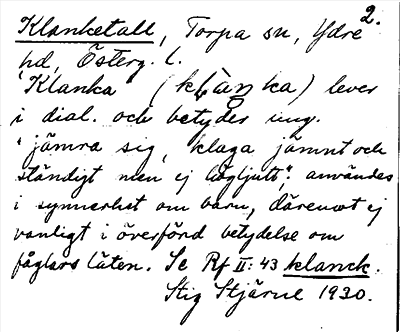 2.
Klanketall, Torpa sn, Ydre
hd, Österg. l.
"Klanka" (klàŋka) lever
i dial. och betyder ung.
"jämra sig, klaga jämnt och
ständigt men ej högljutt"; användes
i synnerhet om barn, däremot ej
vanligt i överförd betydelse om
fåglars läten. Se Rf II: 43 klanck.
Stig Stjärne 1930.